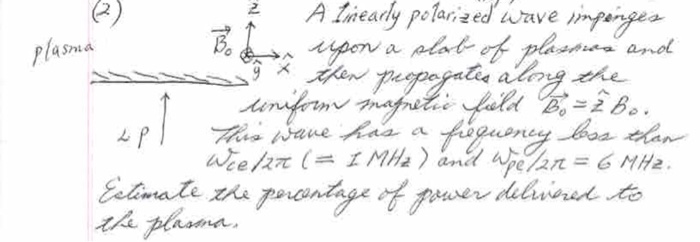 (2) ẑ A linearly polarized wave impinges
plasma B⃗₀ ŷ x̂ upon a slab of plasmas and
then propagates along the
uniform magnetic field B⃗₀ = ẑ B₀.
LP This wave has a frequency less than
ωce/2π (= 1 MHz) and ωpe/2π = 6 MHz.
Estimate the percentage of power delivered to
the plasma.